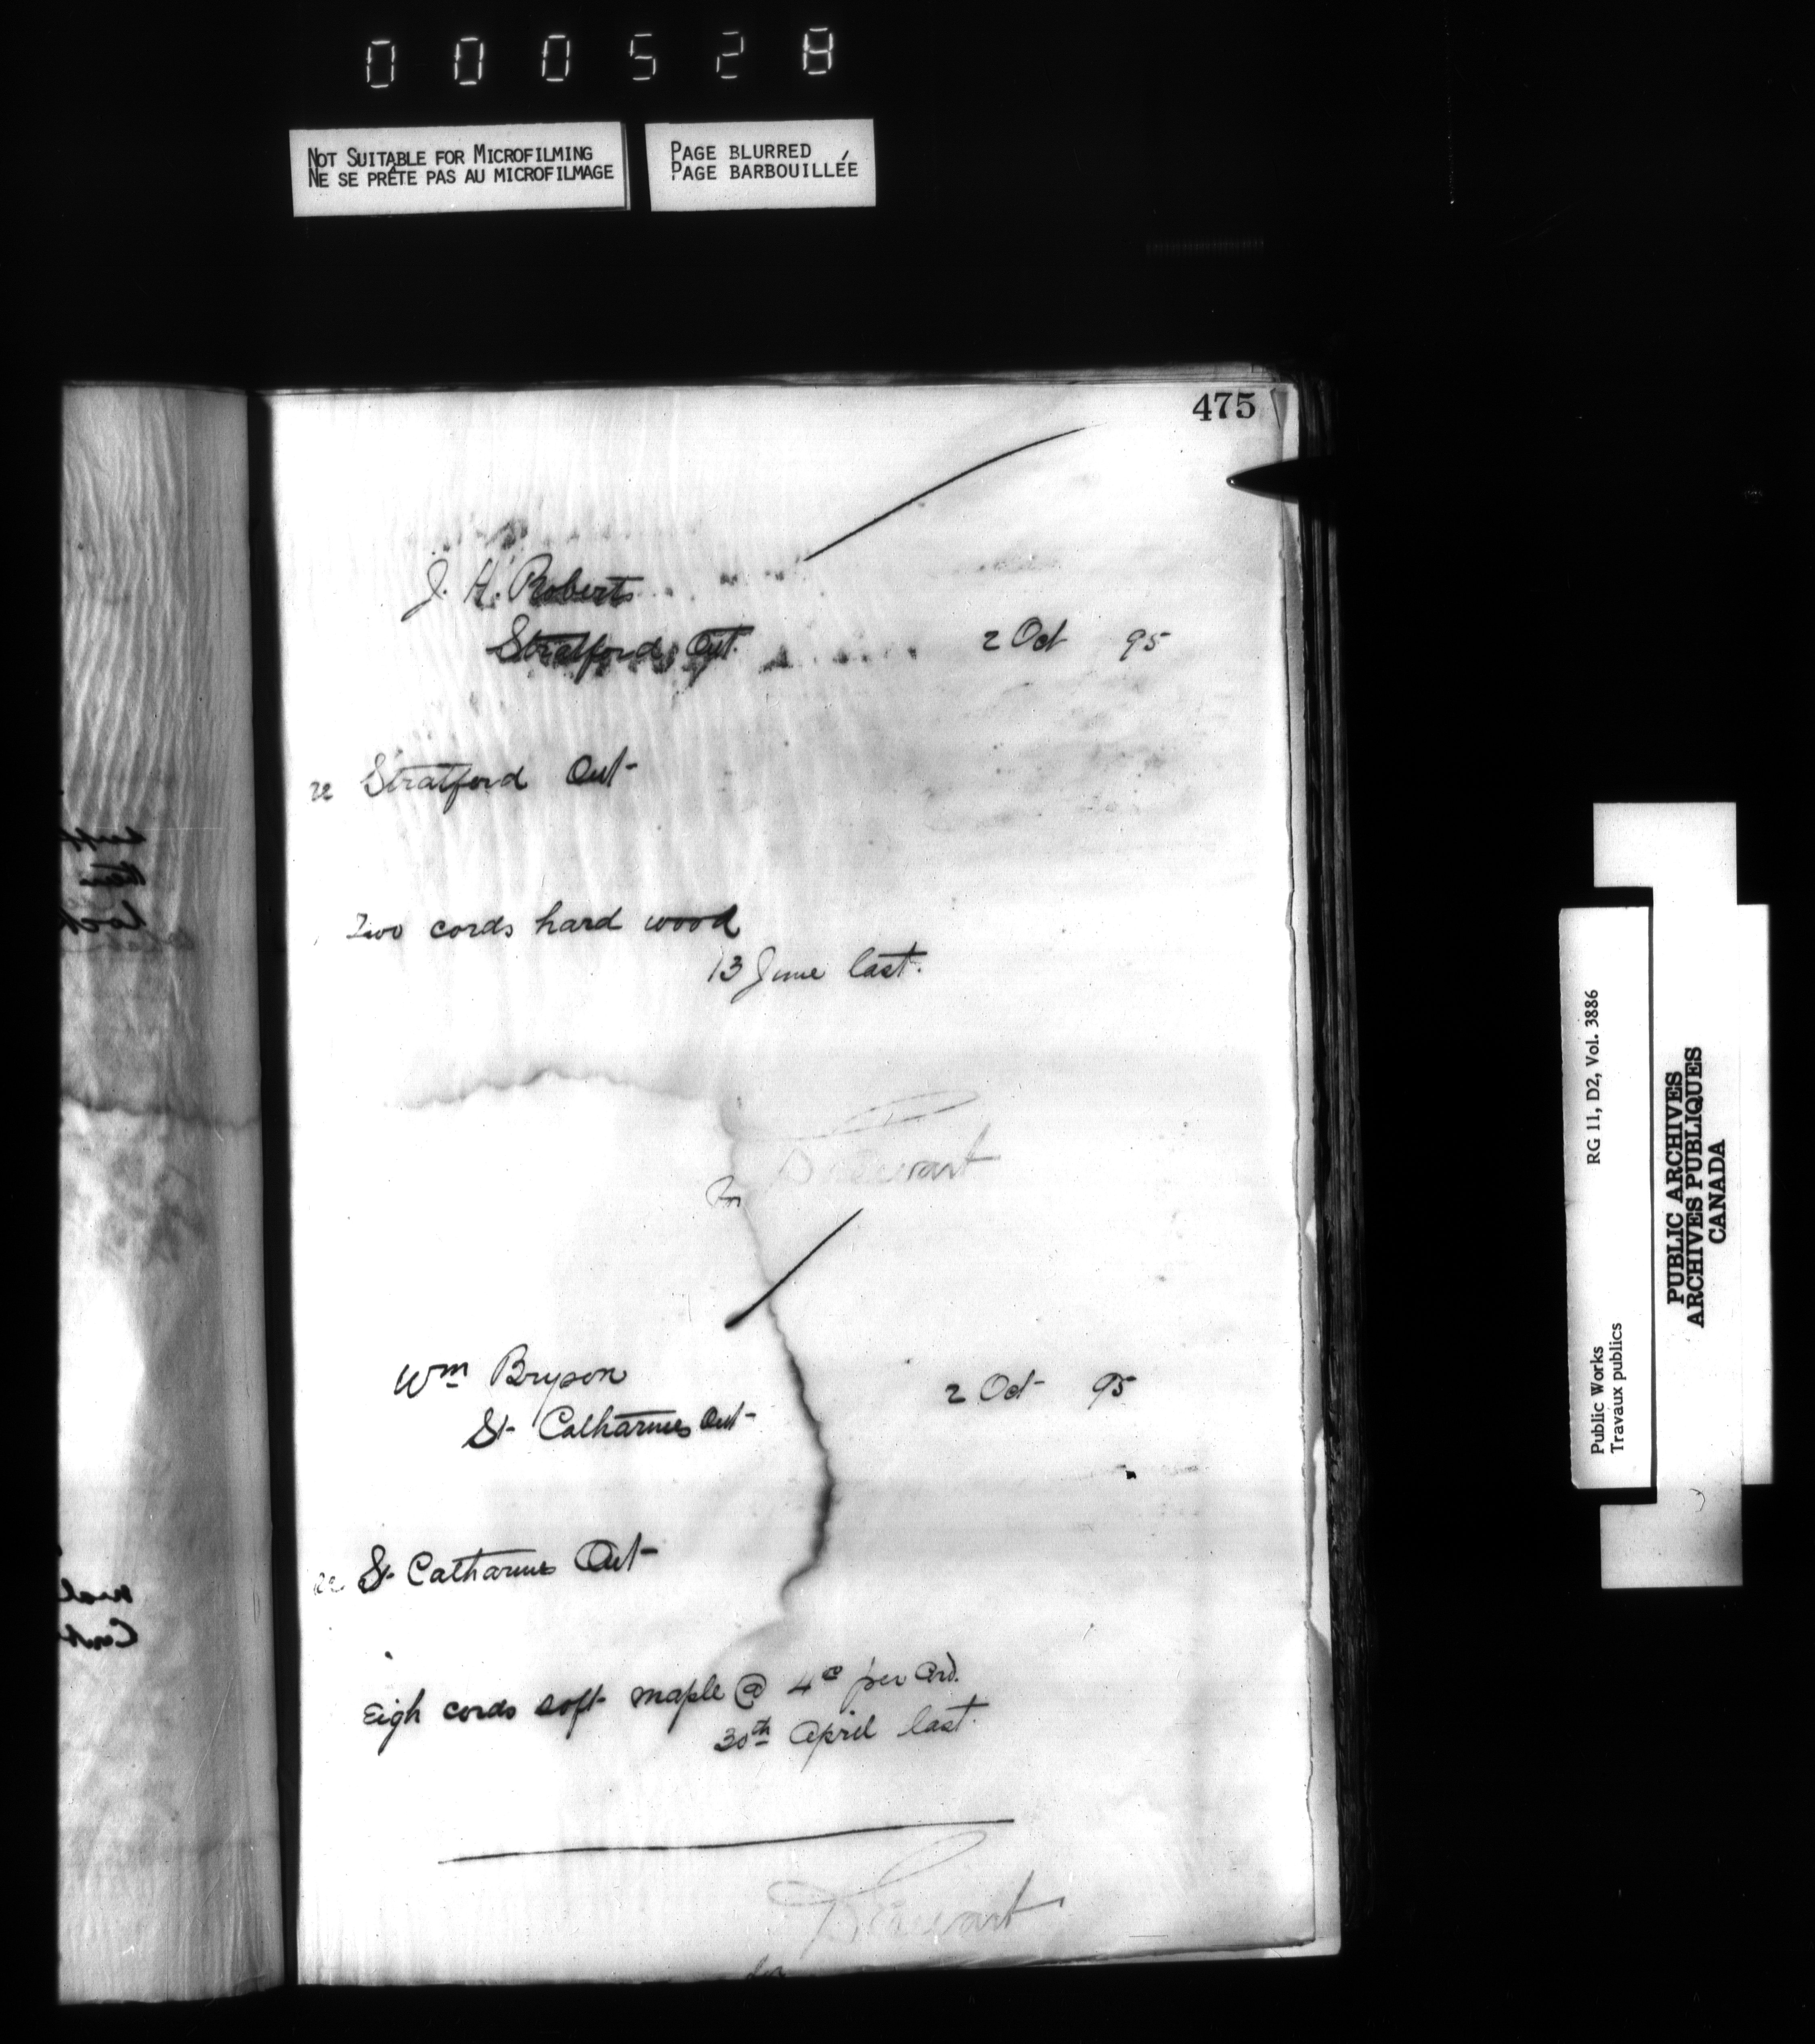 000528
NOT SUITABLE FOR MICROFILMING
NE SE PRÊTE PAS AU MICROFILMAGE
PAGE BLURRED
PAGE BARBOUILLÉE
475
J. H. Roberts
Stratford Ont. 2 Oct 95
re Stratford Ont
Two cords hard wood
13 June last.
for
Wm Bryson
St Catharines Ont 2 Oct 95
re St Catharines Ont
Eigh cords soft maple @ 4c per Crd.
30th April last.
for
Public Works
Travaux publics
RG 11, D2, Vol. 3886
PUBLIC ARCHIVES
ARCHIVES PUBLIQUES
CANADA